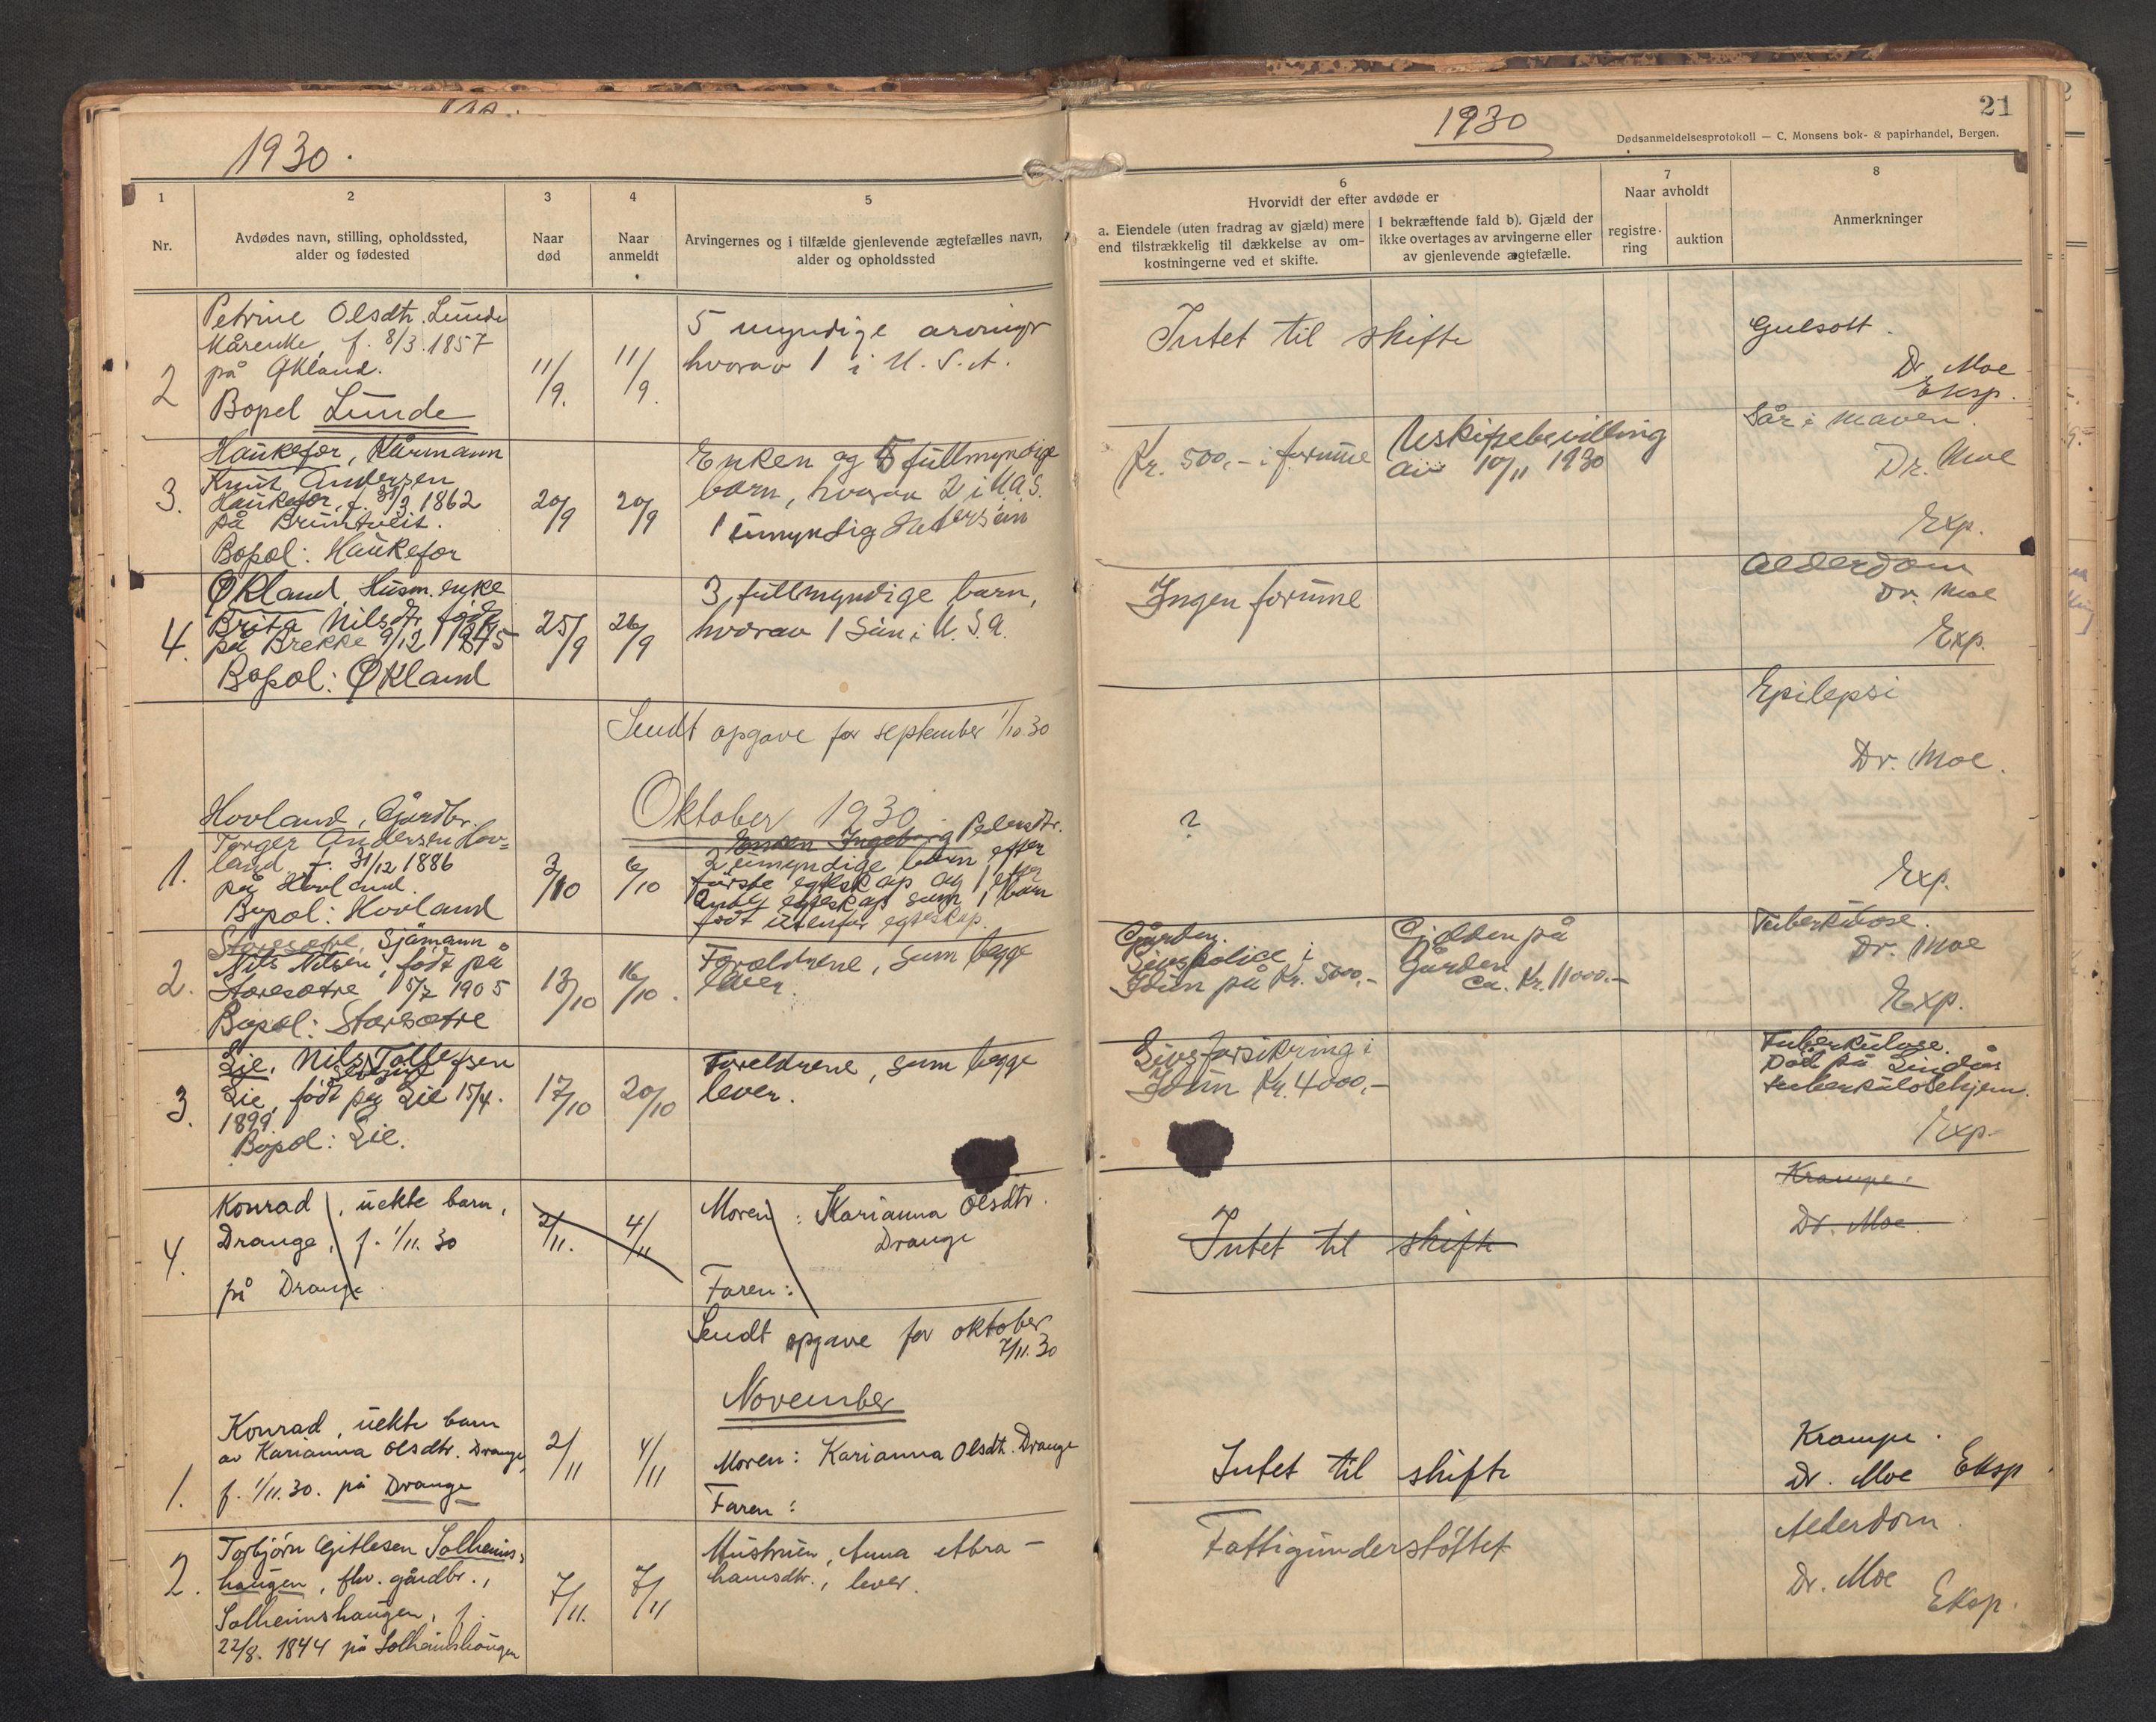 1930.
1
2
3
4
5
Nr.
Avdødes navn, stilling, opholdssted,
alder og fødested
Naar
død
Naar
anmeldt
Arvingernes og i tilfælde gjenlevende ægtefælles navn,
alder og opholdssted
2
Petrine Olsdtr. Lunde
Kårenke, f. 8/3.1857
på Økland.
Bopel Lunde
11/9.
11/9.
5 myndige arvinger
hvorav 1 i U.S.A.
3.
Haukefær, Kårmann
Knut Andersen
Haukefær, f. 31/3 1862
på Bruntveit.
Bopæl: Haukefær
20/9
20/9
Enken og 5 fullmyndige
barn, hvorav 2 i U.A.S.
1 umyndig
4.
Økland, Husm. enke
Brita Nilsdtr, født
på Brekke 9/12 1845
Bopæl: Økland
25/9
26/9
3 fullmyndige barn,
hvorav 1 Sün i U.S.A.
Sendt opgave for september 1/10 30
Oktober 1930
1.
Hovland, Gårdbr.
Torger Andersen Hov=
land f. 31/12 1886
på Hovland.
Bopæl: Hovland
3/10
6/10
Enken Ingeborg Pedersdtr.
2 umyndige barn efter
første egteskap og 1 efter
andet egteskap samt 1 barn
født utenfor egteskap.
2.
Storesætre, Sjømann
Nils Nilsen, født på
Storesætre 15/7 1905
Bopæl: Storesætre
13/10
16/10.
Forældrene, som begge
lever.
3.
Lie, Nils Tollefsen
Lie, født på Lie 15/4.
1899.
Bopæl: Lie.
17/10
20/10
Foreldrene, som begge
lever.
4.
Konrad, uekte barn,
Drange, f. 1/11. 30
på Drange.
2/11.
4/11
Moren: Karianna Olsdtr.
Drange
Faren:
Sendt opgave for oktober
7/11. 30
November
1.
Konrad, uekte barn
av Karianna Olsdtr. Drange,
f. 1/11.30. på Drange
2/11
4/11
Moren: Karianna Olsdt. Drange
Faren:
2.
Torbjørn Gitlesen Solheims-
haugen, fhv. gårdbr.,
Solheimshaugen, f.
22/8. 1844 på Solheimshaugen
7/11.
7/11
Hustruen, Anna Abra-
hamsdtr., lever.
1930
21
Dødsanmeldelsesprotokoll — C. Monsens bok- & papirhandel, Bergen.
6
Hvorvidt der efter avdøde er
a. Eiendele (uten fradrag av gjæld) mere
end tilstrækkelig til dækkelse av om-
kostningerne ved et skifte.
I bekræftende fald b). Gjæld der
ikke overtages av arvingerne eller
av gjenlevende ægtefælle.
7
Naar avholdt
registre-
ring
auktion
8
Anmerkninger
Intet til skifte
Gulsott.
Dr. Moe
Eksp.
Kr. 500,- i formue
Uskiftebevilling
av 10/11 1930
Sår i maven.
Dr. Moe
Exp.
Ingen formue
Alderdom
Dr. Moe
Exp.
?
Epilepsi
Dr. Moe.
Exp.
Gården.
Livspolice i
Idun på Kr. 5000,-
Gjelden på
Gården
ca. Kr. 11000.-
Tuberkulose.
Dr. Moe
Exp.
Livsforsikring i
Idun Kr. 4000,-
Tuberkulose.
Død på Lindås
tuberkulosehjem.
Exp.
Intet til skifte
Krampe.
Dr. Moe
Intet til skifte
Krampe.
Dr. Moe Eksp.
Fattigunderstøttet
Alderdom.
Dr. Moe
Eksp.